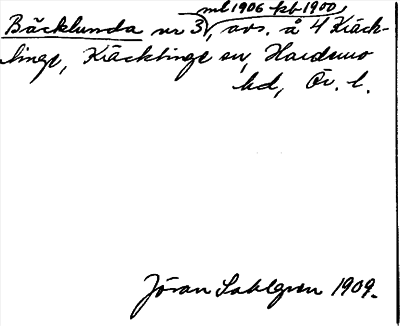 ml 1906 kb 1900
Bäcklunda nr 3, avs. å 4 Kräck-
linge, Kräcklinge sn, Hardemo
hd, Ör. l.
Jöran Sahlgren 1909.